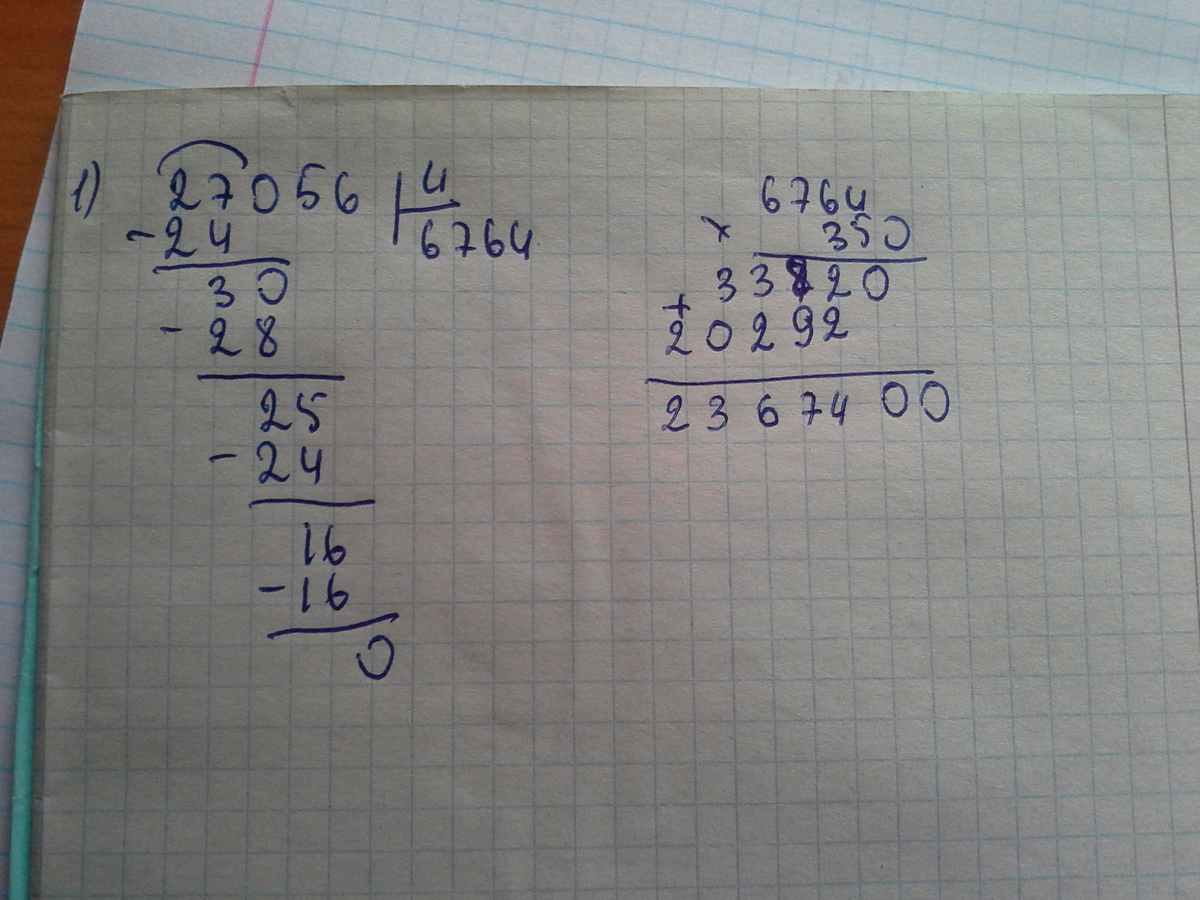 1) 27056 | 4
- 24 6764
30
- 28
25
- 24
16
- 16
0
6764
× 350
33820
+
20292
2367400